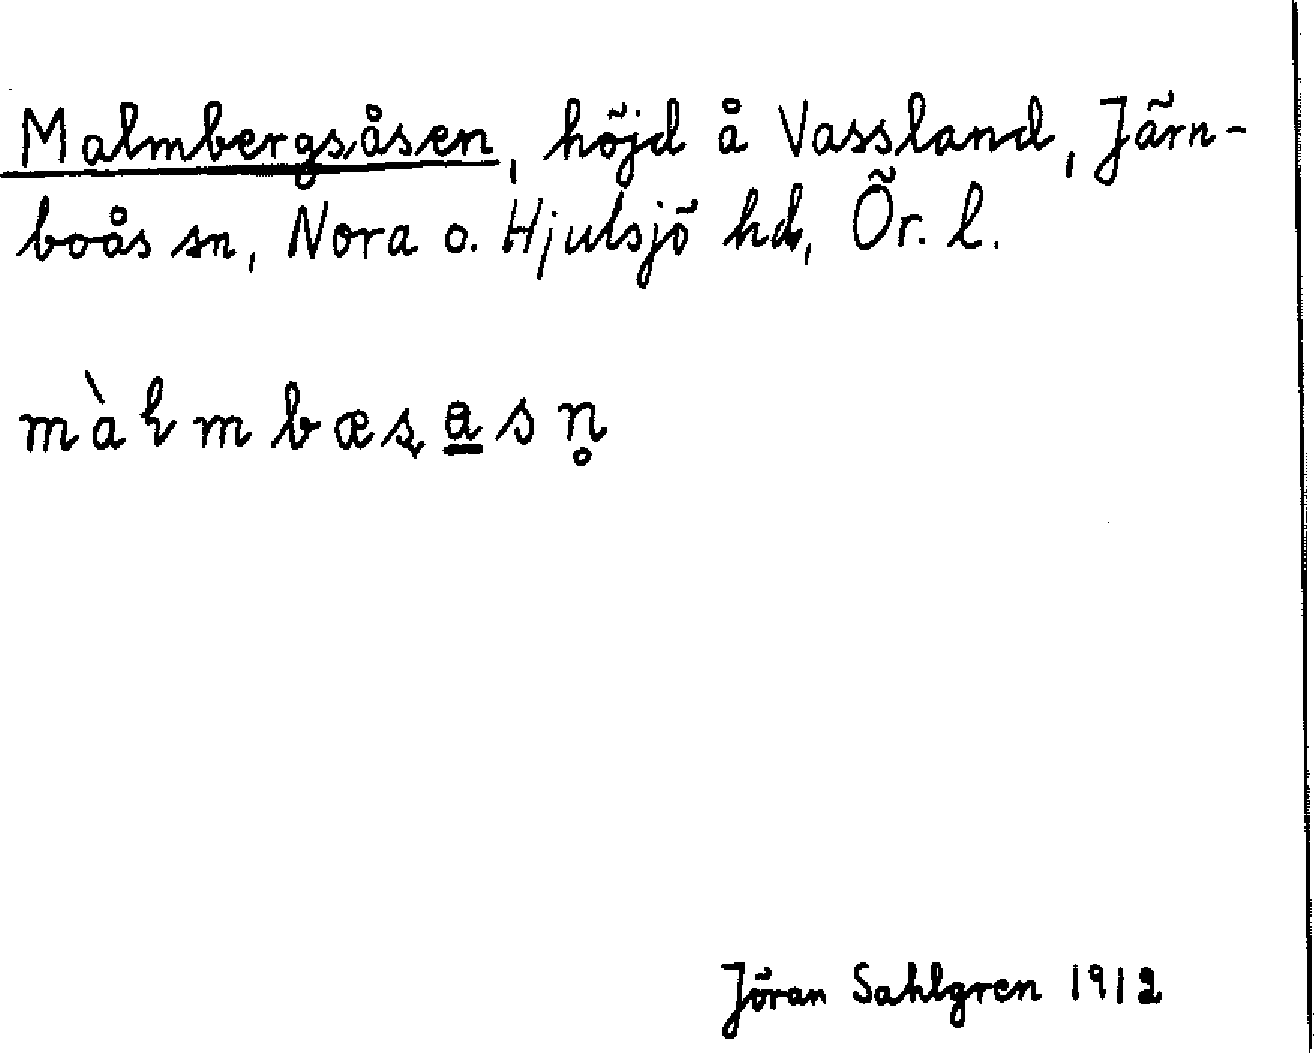 Malmbergsåsen, höjd å Vassland, Järn-
boås sn, Nora o. Hjulsjö hd, Ör. l.
màɫmbæʂa̲sn̥
Jöran Sahlgren 1912